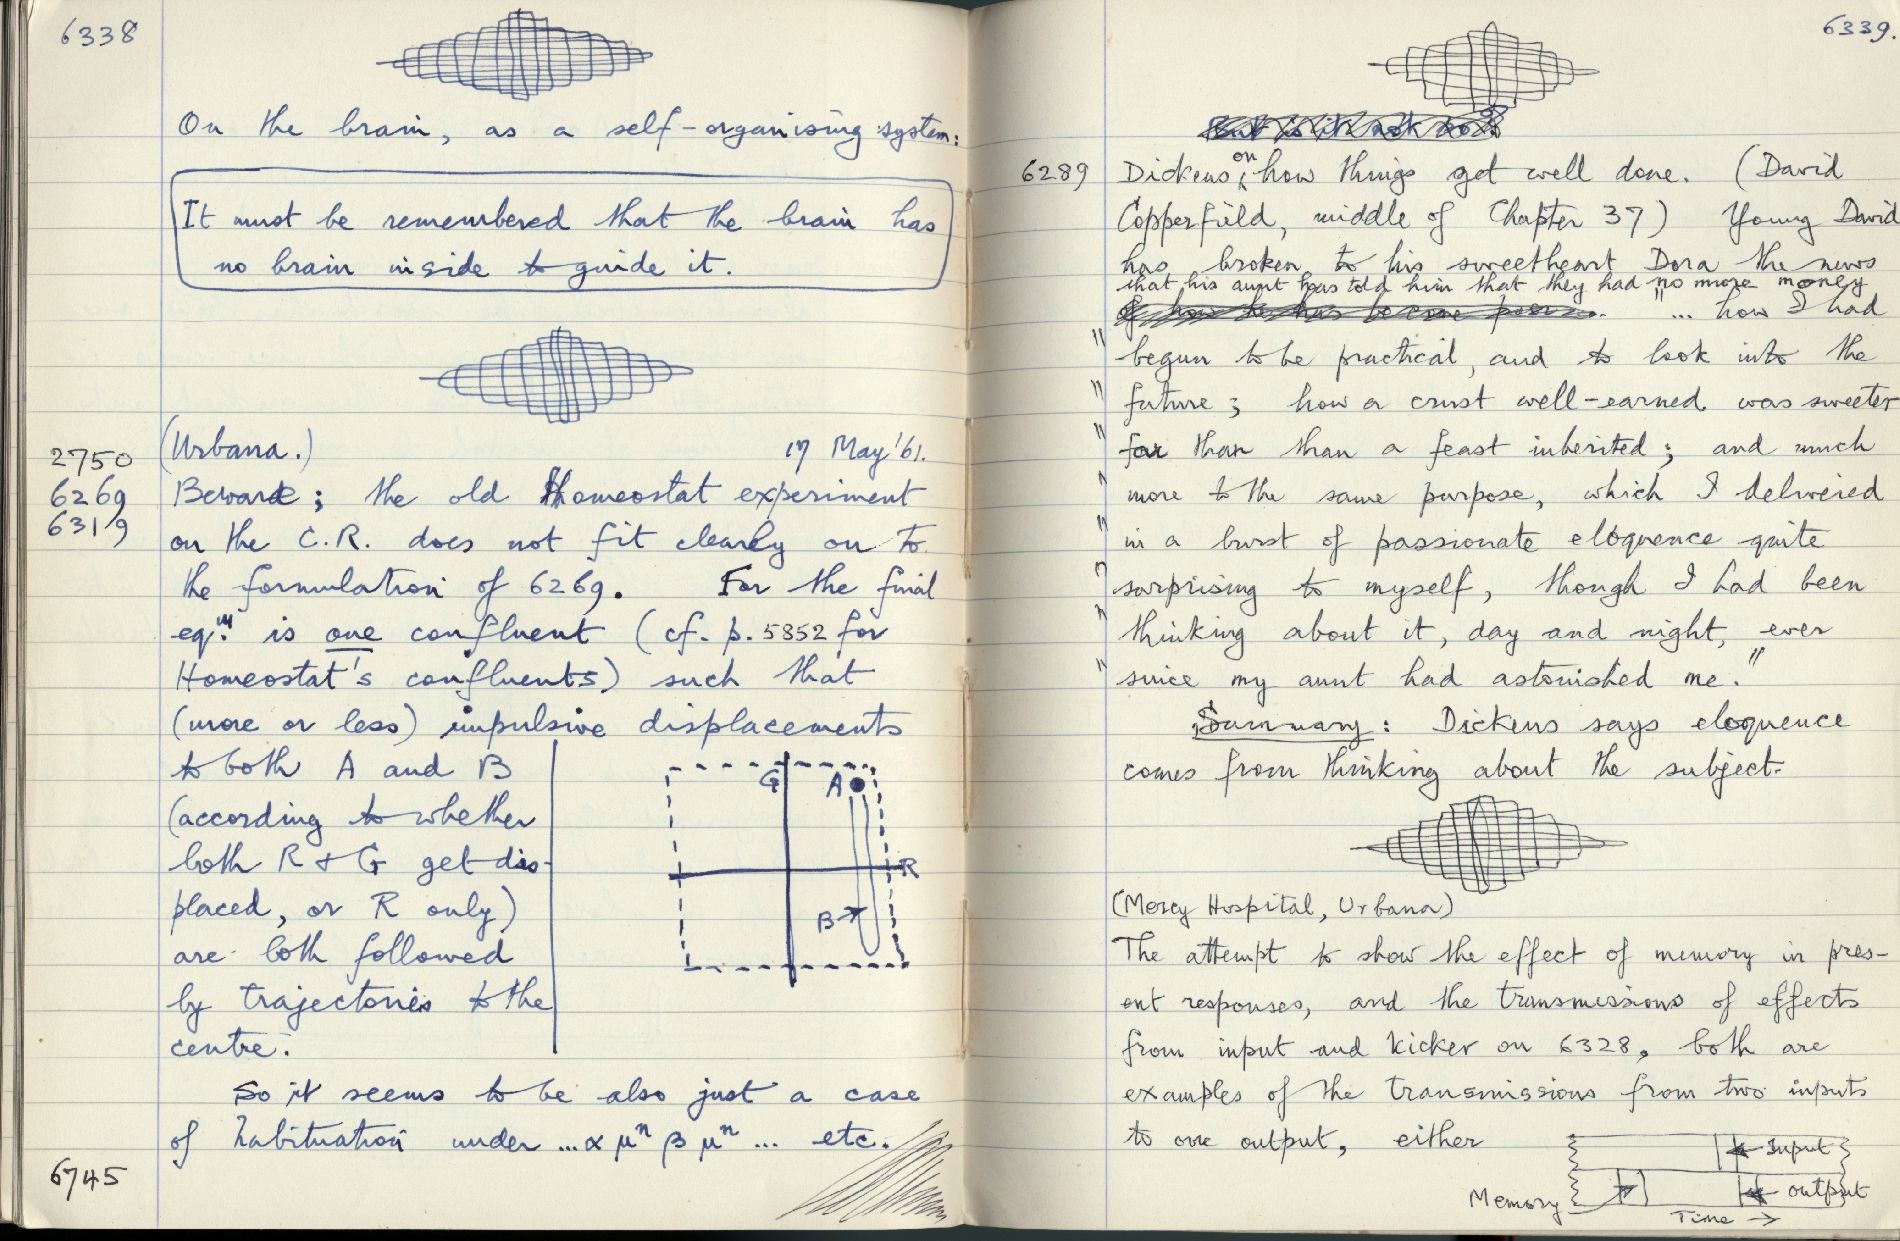 6338
On the brain, as a self-organising system:
It must be remembered that the brain has
no brain inside to guide it.
(Urbana.) 17 May '61.
2750
6269
6319
Beware; the old Homeostat experiment
on the C.R. does not fit clearly on to
the formulation of 6269. For the final
eqn. is one confluent (cf. p. 5852 for
Homeostat's confluents) such that
(more or less) impulsive displacements
to both A and B
(according to whether
both R & G get dis-
placed, or R only)
are both followed
by trajectories to the
centre.
G A
R
B
So it seems to be also just a case
of habituation under ... α μⁿ β μⁿ ... etc.
6745
6339.
6289
Dickens on how things get well done. (David
Copperfield, middle of Chapter 37) Young David
has broken to his sweetheart Dora the news
that his aunt has told him that they had no more money
"... how I had
" begun to be practical, and to look into the
" future; how a crust well-earned was sweeter
" far than than a feast inherited; and much
" more to the same purpose, which I delivered
" in a burst of passionate eloquence quite
" surprising to myself, though I had been
" thinking about it, day and night, ever
" since my aunt had astonished me."
Summary: Dickens says eloquence
comes from thinking about the subject.
(Mercy Hospital, Urbana)
The attempt to show the effect of memory in pres-
ent responses, and the transmissions of effects
from input and kicker on 6328, both are
examples of the transmissions from two inputs
to one output, either
Input
Memory output
Time →